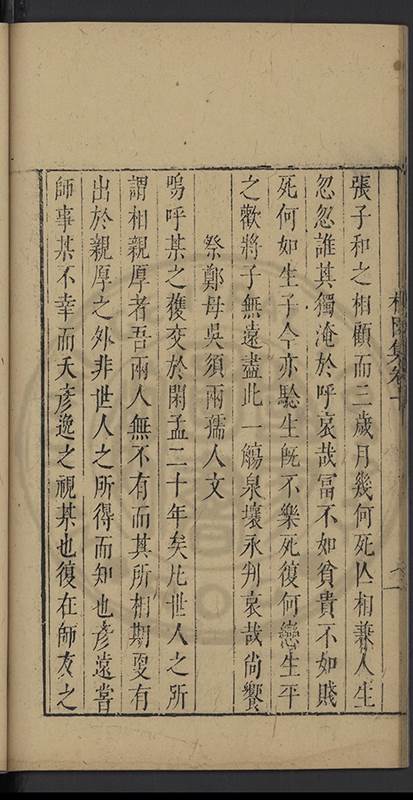 張子和之相顧而三歲月幾何死亾相兼人生
忽忽誰其獨淹於呼哀哉冨不如貧貴不如賤
死何如生子今亦驗生旣不樂死復何戀生平
之歡將子無遠盡此一觴泉壤永判哀哉尚饗
祭鄭母吳須兩孺人文
嗚呼某之獲交於閑孟二十年矣凡世人之所
謂相親厚者吾兩人無不有而其所相期更有
出於親厚之外非世人之所得而知也彥遠嘗
師事某不幸而夭彥逸之視某也復在師友之